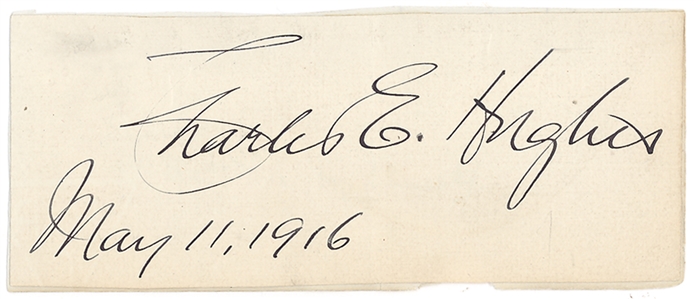 Charles E. Hughes
May 11, 1916